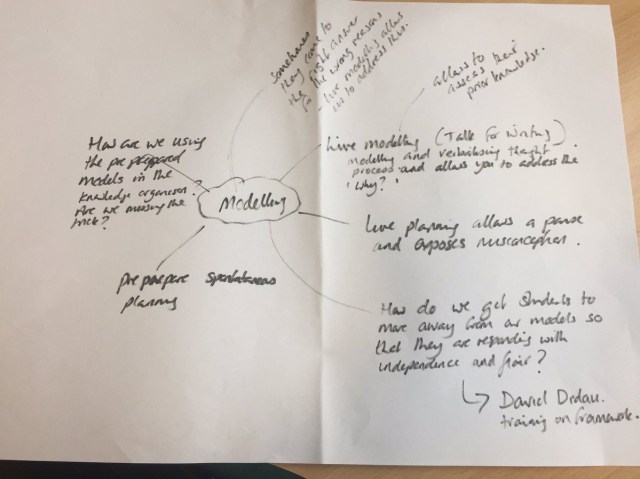 Sometimes
they come to
the right answer
for the wrong reasons
- live modelling allows
us to address this.
allows to
assess their
prior knowledge.
Live modelling (Talk for Writing)
modelling and verbalising thought
process and allows you to address the
'why?'
How are we using
the pre prepared
models in the
knowledge organiser?
Are we missing the
trick?
Modelling
Live planning allows a pause
and exposes misconception.
pre prepare spontaneous
planning
How do we get students to
move away from our models so
that they are responding with
independence and flair?
David
training on framework.